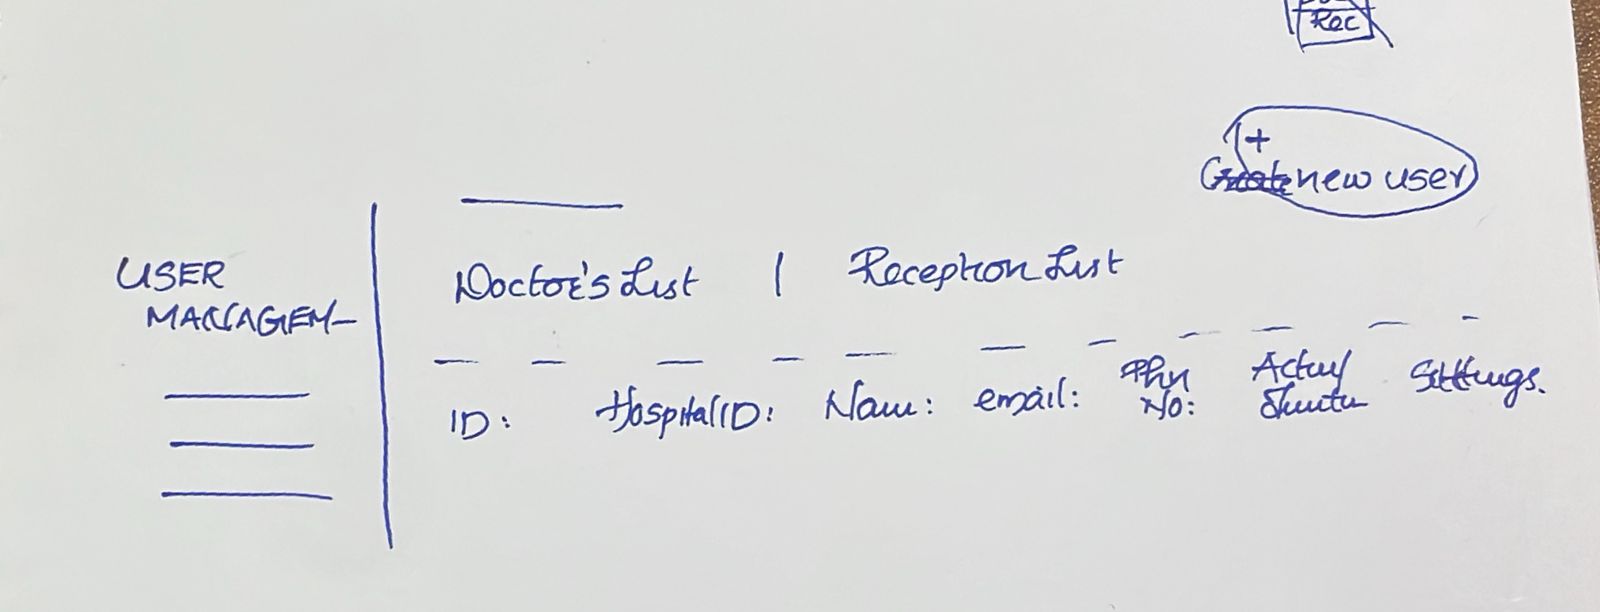 Rec
+
new user
USER
MANAGEM-
Doctor's List | Reception List
ID: Hospital ID: Name: email: Phn No: Settings.